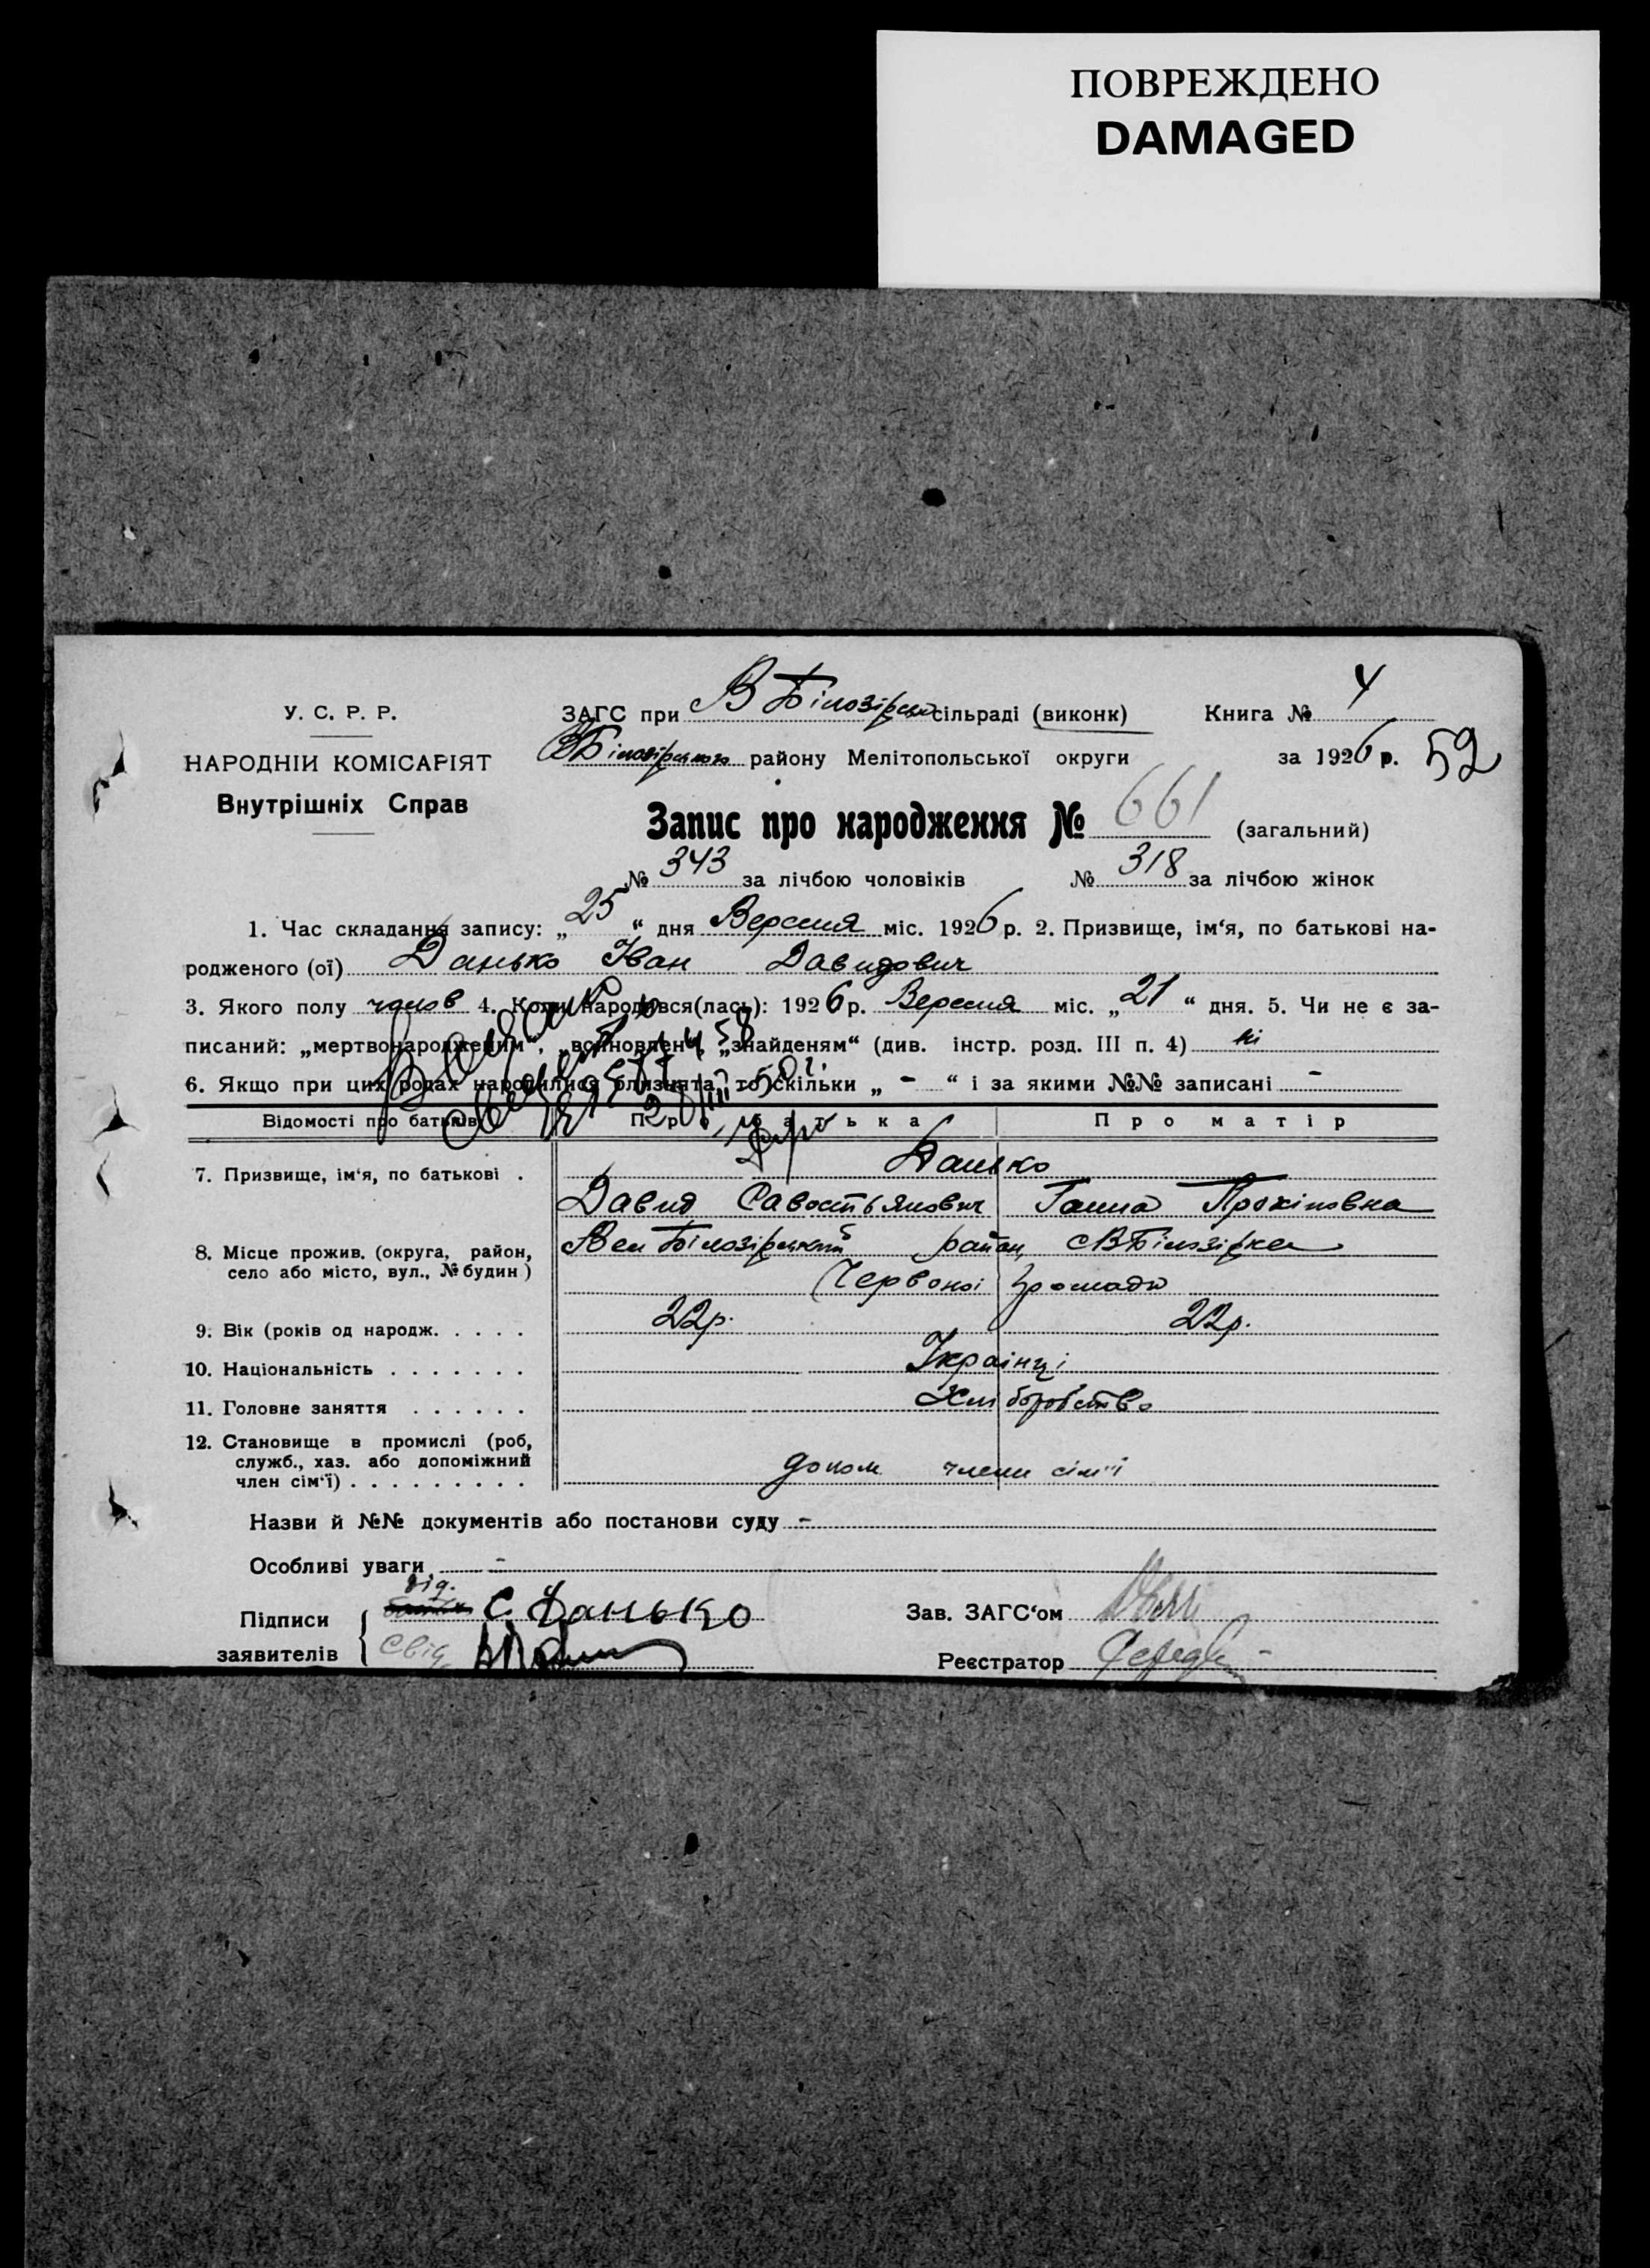 ПОВРЕЖДЕНО
DAMAGED
У. С. Р. Р.
НАРОДНІЙ КОМІСАРІЯТ
Внутрішніх Справ
ЗАГС при В Білозірськ сільраді (виконк) Книга № 4
ВБілозірського району Мелітопольської округи за 1926 р. 52
Запис про народження № 661 (загальний)
№ 343 за лічбою чоловіків № 318 за лічбою жінок
1. Час складання запису: „25“ дня Вересня міс. 1926 р. 2. Призвище, ім‘я, по батькові на-
родженого (ої) Данько Іван Давидович
3. Якого полу чолов 4. Коли народився(лась): 1926 р. Вересня міс. „21“ дня. 5. Чи не є за-
писаний: „мертвонародженим“, „всиновлени „знайденям“ (див. інстр. розд. III п. 4) ні
6. Якщо при цих родах народилися близнята, то скільки „ - “ і за якими №№ записані -
Відомості про батьків Про батька Про матір
7. Призвище, ім‘я, по батькові . Данько
Давид Савостьянович Ганна Прокіповна
8. Місце прожив. (округа, район, Вел Білозірський район, с ВБілозірка
село або місто, вул., № будин) Червоної Громади
9. Вік (років од народж. . . . . 22р. 22р.
10. Національність . . . . . . . Українці
11. Головне заняття . . . . . . Хліборобство
12. Становище в промислі (роб,
служб., хаз. або допоміжний
член сім‘ї) . . . . . . . . . допом члени сім'ї
Назви й №№ документів або постанови суду -
Особливі уваги -
Підписи
дід. С. Данько Зав. ЗАГС‘ом
заявителів
Свід. Реєстратор